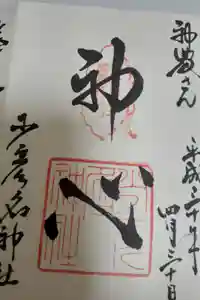 神農さん
平成三十年
四月三十日
神心
少彦名神社